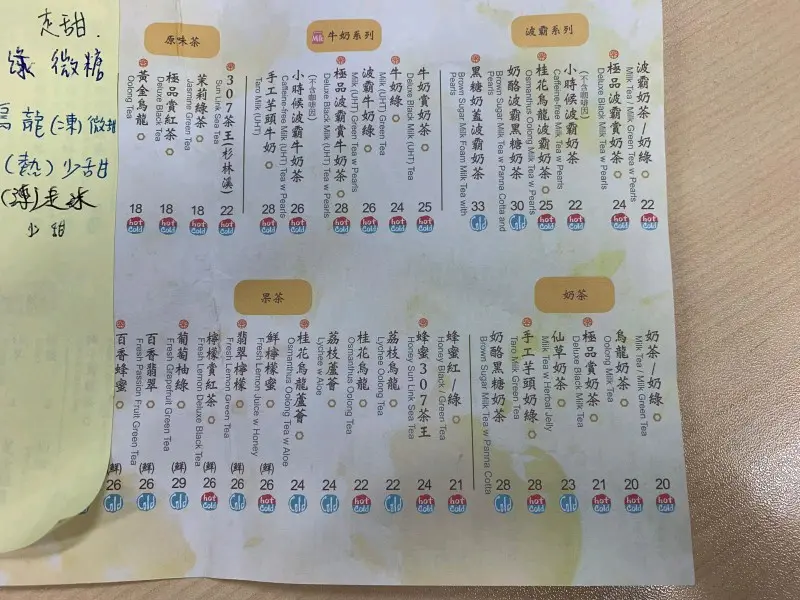 波霸系列
波霸奶茶/奶綠
Milk Tea / Milk Green Tea w Pearls
22
hot cold
極品波霸賞奶茶
Deluxe Black Milk Tea w Pearls
24
hot cold
小時候波霸奶茶
(不含咖啡因)
Caffeine-free Milk Tea w Pearls
22
hot cold
桂花烏龍波霸奶茶
Osmanthus Oolong Milk Tea w Pearls
25
hot cold
奶酪波霸黑糖奶茶
Brown Sugar Milk Tea w Panna Cotta and Pearls
30
Cold
黑糖奶蓋波霸奶茶
Brown Sugar Milk Foam Milk Tea with Pearls
33
Cold
牛奶系列
牛奶賞奶茶
Deluxe Black Milk (UHT) Tea
25
hot cold
牛奶綠
Milk (UHT) Green Tea
24
hot cold
波霸牛奶綠
Milk (UHT) Green Tea w Pearls
26
hot cold
極品波霸賞牛奶茶
Deluxe Black Milk (UHT) Tea w Pearls
28
hot cold
小時候波霸牛奶茶
(不含咖啡因)
Caffeine-free Milk (UHT) Tea w Pearls
26
hot cold
手工芋頭牛奶
Taro Milk (UHT)
28
hot cold
原味茶
307茶王(杉林溪)
Sun Link Sea Tea
22
hot cold
茉莉綠茶
Jasmine Green Tea
18
hot cold
極品賞紅茶
Deluxe Black Tea
18
hot cold
黃金烏龍
Oolong Tea
18
hot cold
奶茶
奶茶/奶綠
Milk Tea / Milk Green Tea
20
hot cold
烏龍奶茶
Oolong Milk Tea
20
hot cold
極品賞奶茶
Deluxe Black Milk Tea
21
hot cold
仙草奶茶
Milk Tea w Herbal Jelly
23
Cold
手工芋頭奶綠
Taro Milk Green Tea
28
hot cold
奶酪黑糖奶茶
Brown Sugar Milk Tea w Panna Cotta
28
Cold
果茶
蜂蜜紅/綠
Honey Black / Green Tea
21
hot cold
蜂蜜307茶王
Honey Sun Link Sea Tea
24
hot cold
荔枝烏龍
Lychee Oolong Tea
22
Cold
桂花烏龍
Osmanthus Oolong Tea
22
hot cold
荔枝蘆薈
Lychee w Aloe
24
Cold
桂花烏龍蘆薈
Osmanthus Oolong Tea w Aloe
24
Cold
鮮檸檬蜜
Fresh Lemon Juice w Honey
(鮮)
26
hot cold
翡翠檸檬
Fresh Lemon Green Tea
(鮮)
26
Cold
檸檬賞紅茶
Fresh Lemon Deluxe Black Tea
(鮮)
26
hot cold
葡萄柚綠
Fresh Grapefruit Green Tea
(鮮)
29
Cold
百香翡翠
Fresh Passion Fruit Green Tea
(鮮)
26
Cold
百香蜂蜜
(鮮)
26
Cold
走甜.
綠 微糖
烏龍(凍)微甜
(熱)少甜
少甜